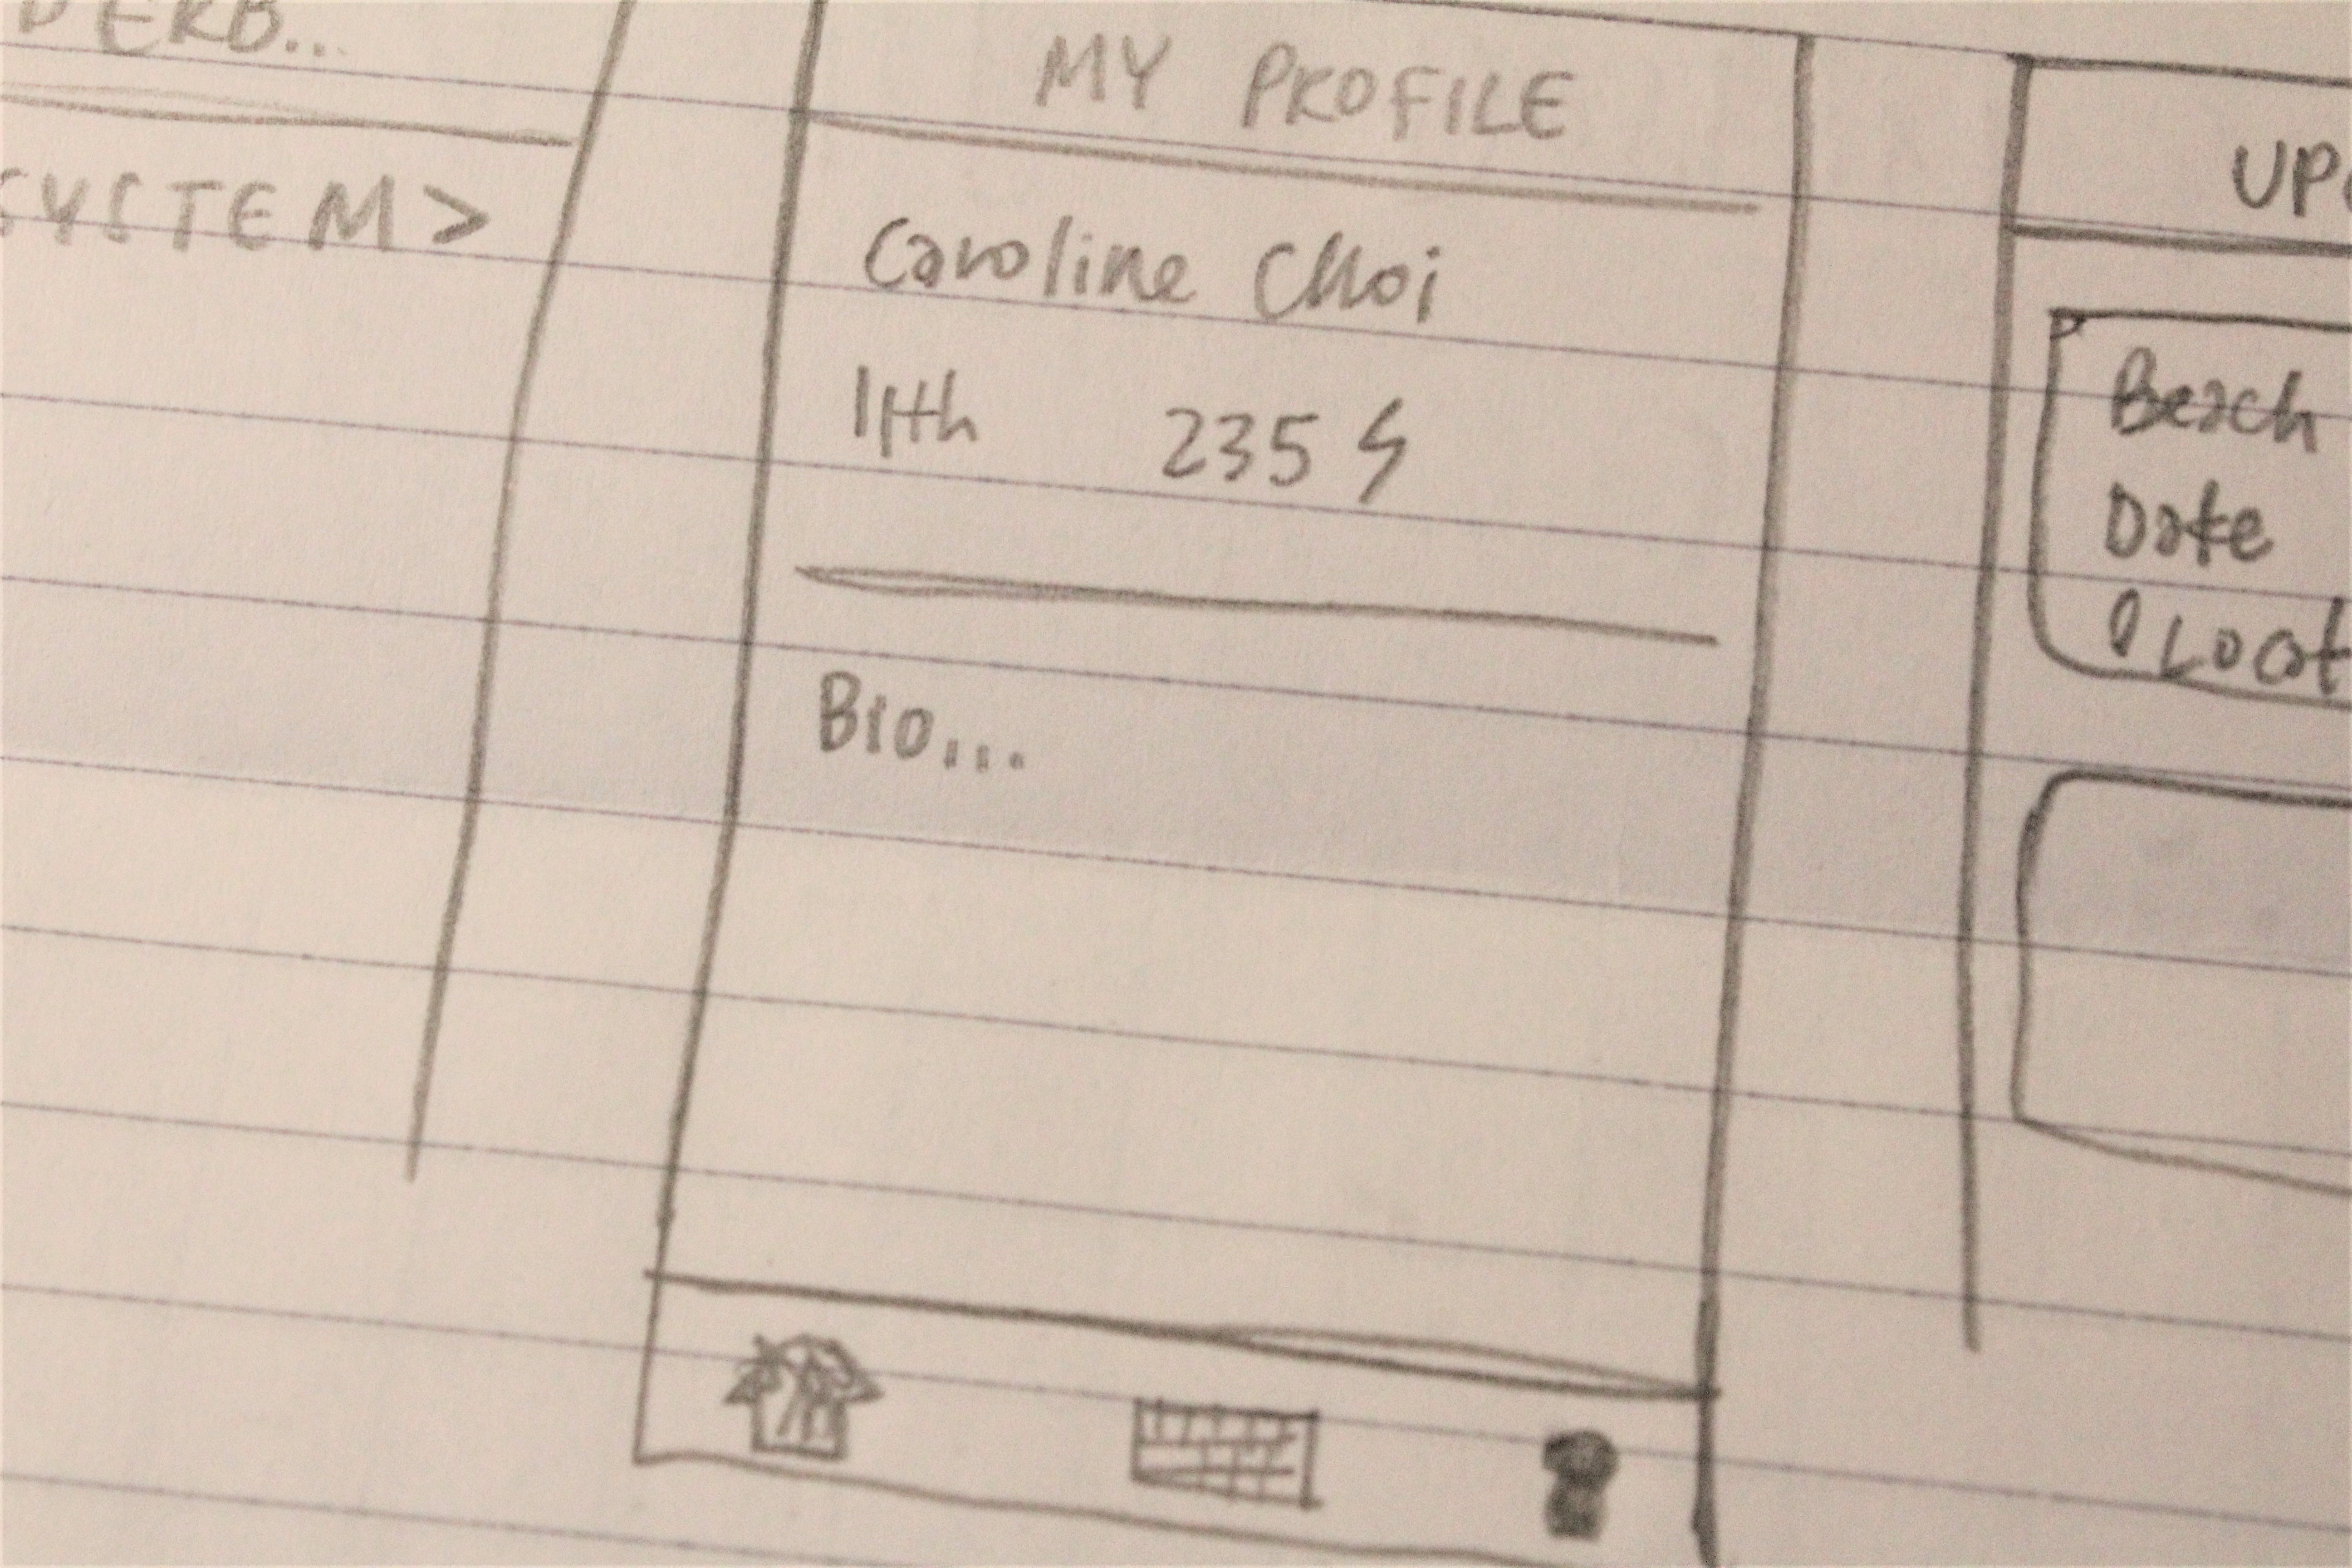 SYSTEM>
MY PROFILE
Caroline Choi
11th 235
Bio...
UP
Beach
Date
Locat